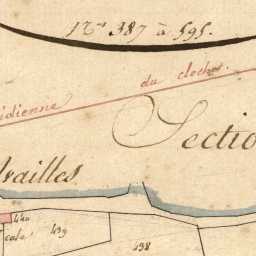 Nos 387 à 595.
idienne du clocher
Sectio
railles
440
439
438